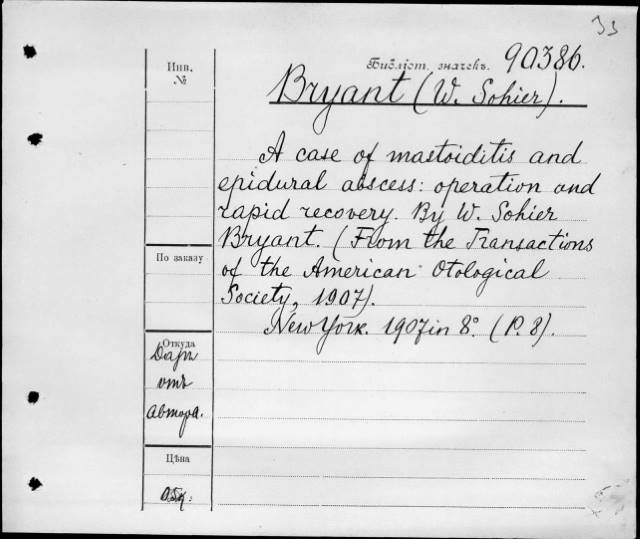 Инв.
№
Библіот. значекъ. 90386.
Bryant (W. Sohier).
A case of mastoiditis and
epidural abscess: operation and
rapid recovery. By W. Sohier
Bryant. (From the Transactions
of the American Otological
Society, 1907).
New York. 1907 in 8º. (P. 8).
По заказу
Откуда
Даръ
отъ
автора.
Цѣна